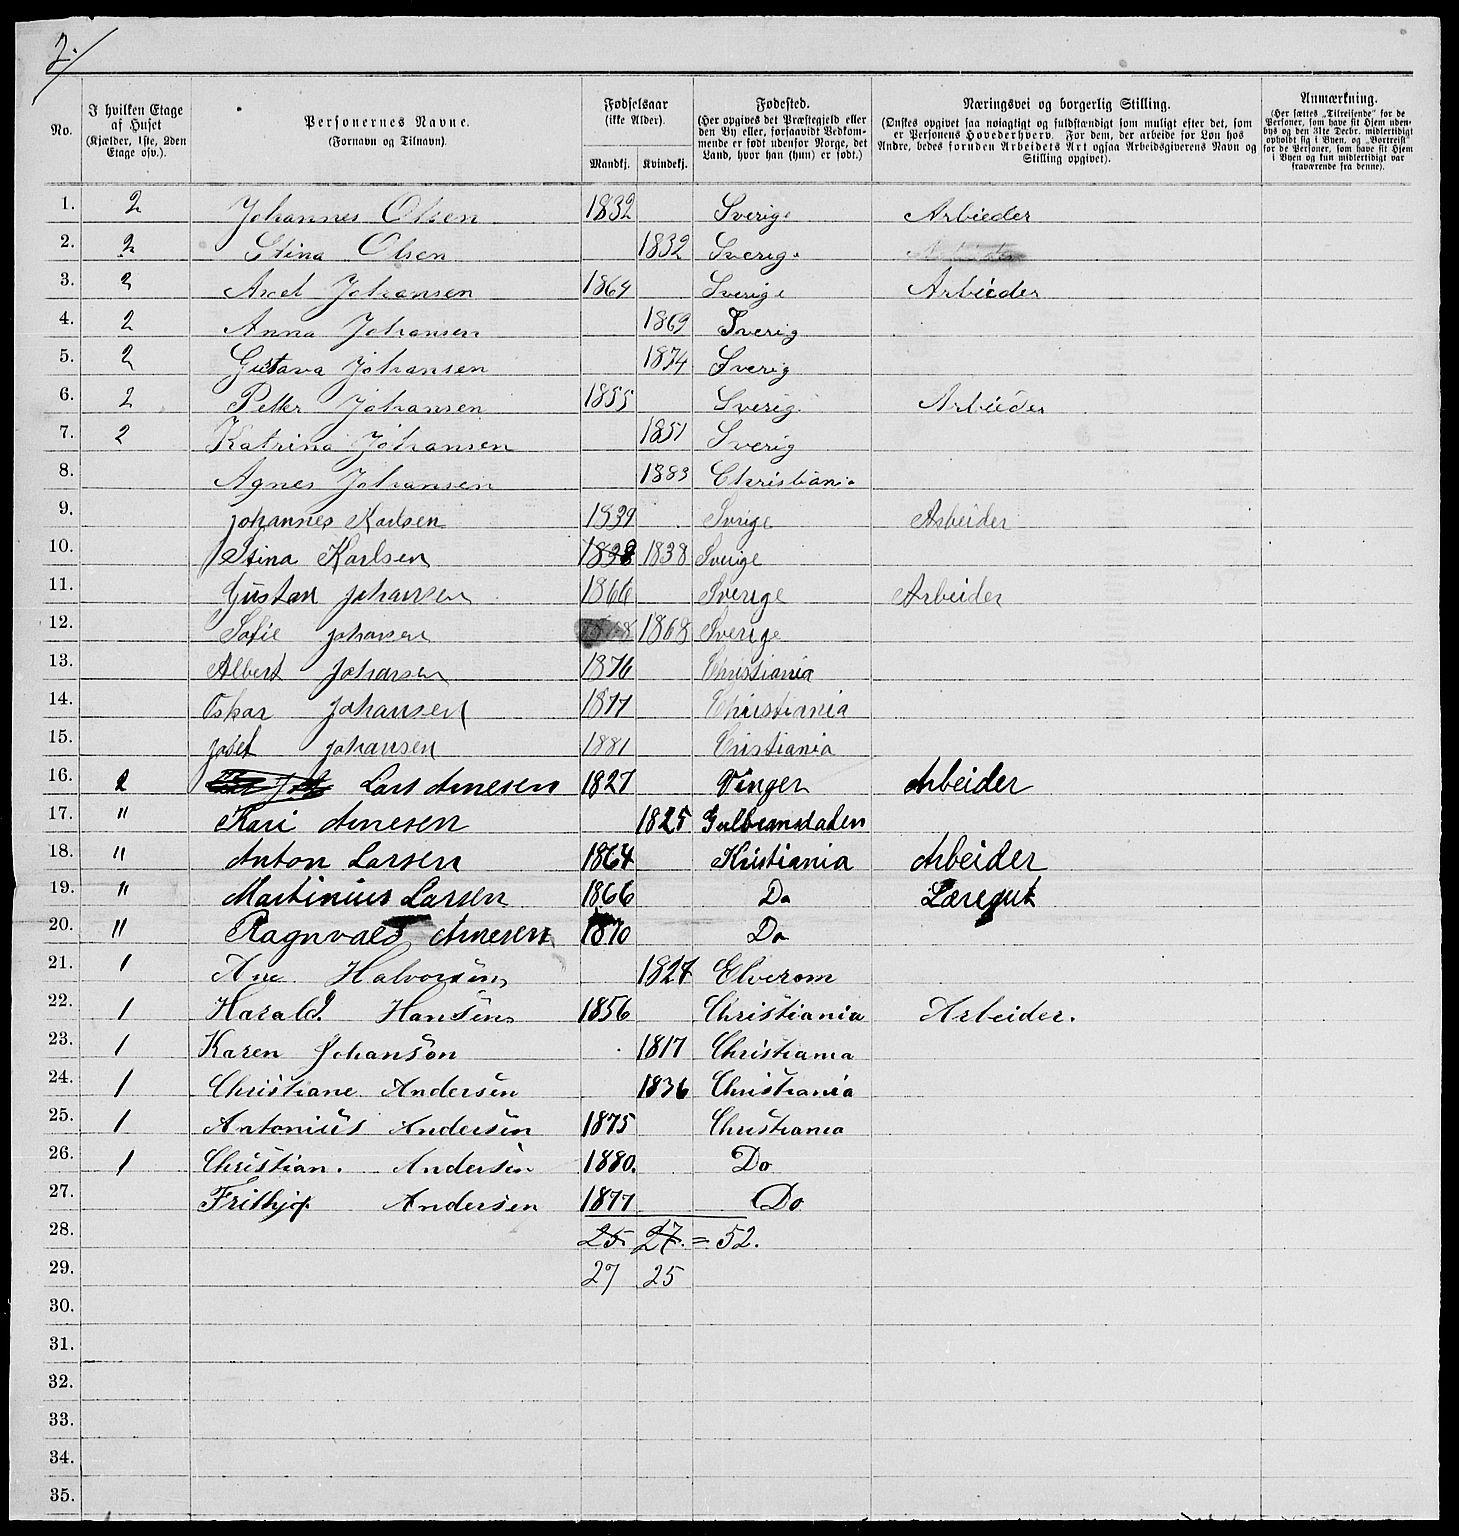 2.
No.
I hvilken Etage af Huset
(Kjælder, 1ste, 2den Etage osv.).
Personernes Navne.
(Fornavn og Tilnavn).
Fødselsaar
(ikke Alder).
Mandkj. Kvindekj.
Fødested.
(Her opgives det Præstegjeld eller
den By eller, forsaavidt Vedkom-
mende er født udenfor Norge, det
Land, hvor han (hun) er født.)
Næringsvei og borgerlig Stilling.
(Ønskes opgivet saa nøiagtigt og fuldstændigt som muligt efter det, som
er Personens Hovederhverv. For dem, der arbeide for Løn hos
Andre, bedes foruden Arbeidets Art ogsaa Arbeidsgiverens Navn og
Stilling opgivet).
Anmærkning.
(Her sættes „Tilreisende" for de
Personer, som have sit Hjem uden-
bys og den 31te Decbr. midlertidigt
opholdt sig i Byen, og „Bortreist"
for de Personer, som have sit Hjem
i Byen og kun midlertidigt var
fraværende fra denne).
1. 2 Johannes Olsen 1832 Sverige Arbieder
2. 2 Stina Olsen 1832 Sverig.
3. 2 Axel Johansen 1864 Sverige Arbieder
4. 2 Anna Johansen 1869 Sverig
5. 2 Gustava Johansen 1874 Sverig
6. 2 Petter Johansen 1855 Sverig Arbieder
7. 2 Katrina Johansen 1851 Sverig
8. Agnes Johansen 1883 Christiania
9. Johannes Karlsen 1839 Svrige Arbeider
10. Stina Karlsen 1838 1838 Sverige
11. Gustav Johansen 1866 Sverige Arbeider
12. Sofie Johansen 1868 1868 Sverige
13. Albert Johansen 1876 Christiania
14. Oskar Johansen 1877 Christiania
15. Josef Johansen 1881 Cristiania
16. 2 Lars Arnesen 1827 Vinger Arbeider
17. " Kari Arnesen 1825 Gulbranstaden
18. " Anton Larsen 1864 Kristiania Arbeider
19. " Martinius Larsen 1866 Do Læregut
20. " Ragnvald Arnesen 1870 Do
21. 1 Ane Halvorsen 1827 Elverom
22. 1 Harald Hansen 1856 Christiania Arbeider.
23. 1 Karen Johanson 1817 Christiania
24. 1 Christiane Andersen 1836 Christiania
25. 1 Antonius Andersen 1875 Christiania
26. 1 Christian. Andersen 1880. Do
27. Frithjof Andersen 1877 Do
28. 25. 27. = 52.
29. 27 25
30.
31.
32.
33.
34.
35.